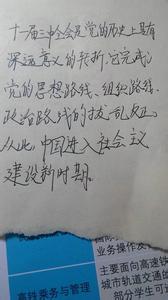 十一届三中全会是党的历史上具有
深远意义的转折。它完成了
党的思想路线、组织路线、
政治路线的拨乱反正。
从此，中国进入社会主义
建设新时期。
业务操作及
主要面向高速铁
高铁乘务与管理
城市轨道交通的
部分学生可